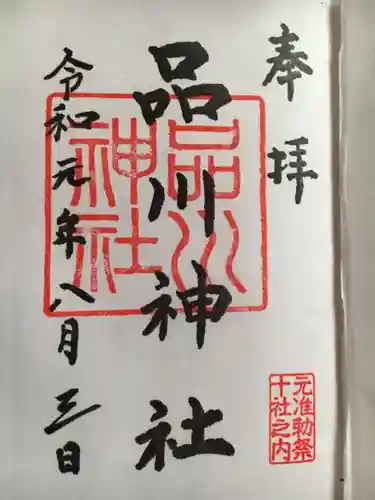 奉拝
品川神社
品川神社
令和元年八月三日
元准勅祭
十社之内